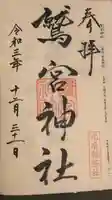 奉拝
鷲宮神社
令和三年十二月三十一日